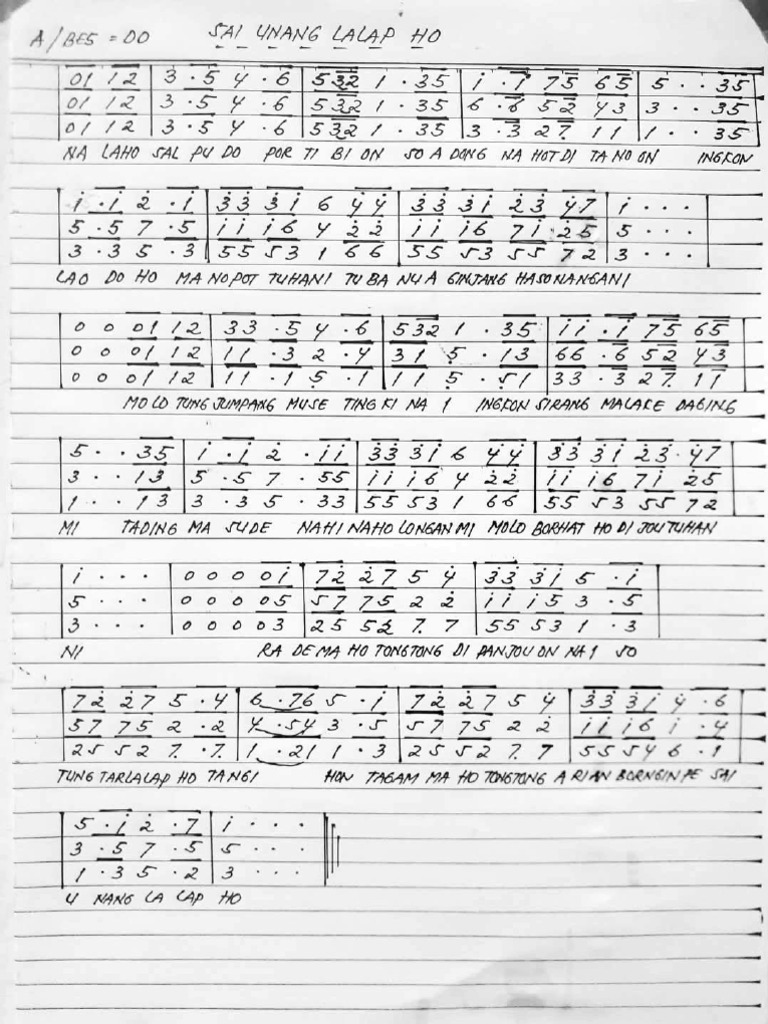 A/BES = DO SAI UNANG LALAP HO
01 12 | 3 . 5 4 . 6 | 532 1 . 35 | i . 7 75 65 | 5 . . 35
01 12 | 3 . 5 4 . 6 | 532 1 . 35 | 6 . 6 52 43 | 3 . . 35
01 12 | 3 . 5 4 . 6 | 532 1 . 35 | 3 . 3 27 11 | 1 . . 35
NA LAHO SAL PU DO POR TI BI ON SO A DONG NA HOT DI TA NO ON INGKON
i . i 2 . i | 33 3i 6 44 | 33 3i 23 47 | i . . .
5 . 5 7 . 5 | ii i6 4 22 | ii i6 7i 25 | 5 . . .
3 . 3 5 . 3 | 55 53 1 66 | 55 53 55 72 | 3 . . .
LAO DO HO MA NOPOT TUHANI TU BA NUA GINJANG HASONANGANI
0 0 01 12 | 33 . 5 4 . 6 | 532 1 . 35 | ii . i 75 65
0 0 01 12 | 11 . 3 2 . 4 | 31 5 . 13 | 66 . 6 52 43
0 0 01 12 | 11 . 1 5 . 1 | 11 5 . 51 | 33 . 3 27 11
MOLO TUNG JUMPANG MUSE TINGKI NA I INGKON SIRANG MALAKE DAGING
5 . . 35 | i . i 2 . ii | 33 3i 6 44 | 33 3i 23 . 47
3 . . 13 | 5 . 5 7 . 55 | ii i6 4 22 | ii i6 7i 25
1 . . 13 | 3 . 3 5 . 33 | 55 53 1 66 | 55 53 55 72
MI TADING MA SUDE NAHI NAHO LONGAN MI MOLO BORHAT HO DI JOU TUHAN
i . . . | 0 0 0 0i | 72 27 5 4 | 33 3i 5 . i
5 . . . | 0 0 0 05 | 57 75 2 2 | ii i5 3 . 5
3 . . . | 0 0 0 03 | 25 52 7. 7 | 55 53 1 . 3
NI RA DE MA HO TONGTONG DI PANJOU ON NA I SO
72 27 5 . 4 | 6 . 76 5 . i | 72 27 5 4 | 33 3i 4 . 6
57 75 2 . 2 | 4 . 54 3 . 5 | 57 75 2 2 | ii i6 i . 4
25 52 7. . 7. | 1 . 21 1 . 3 | 25 52 7. 7 | 55 54 6 . 1
TUNG TARLALAP HO TANGI HON TAGAM MA HO TONGTONG A RI AN BORNGIN PE SAI
5 . i 2 . 7 | i . . .
3 . 5 7 . 5 | 5 . . .
1 . 3 5 . 2 | 3 . . .
U NANG LA LAP HO